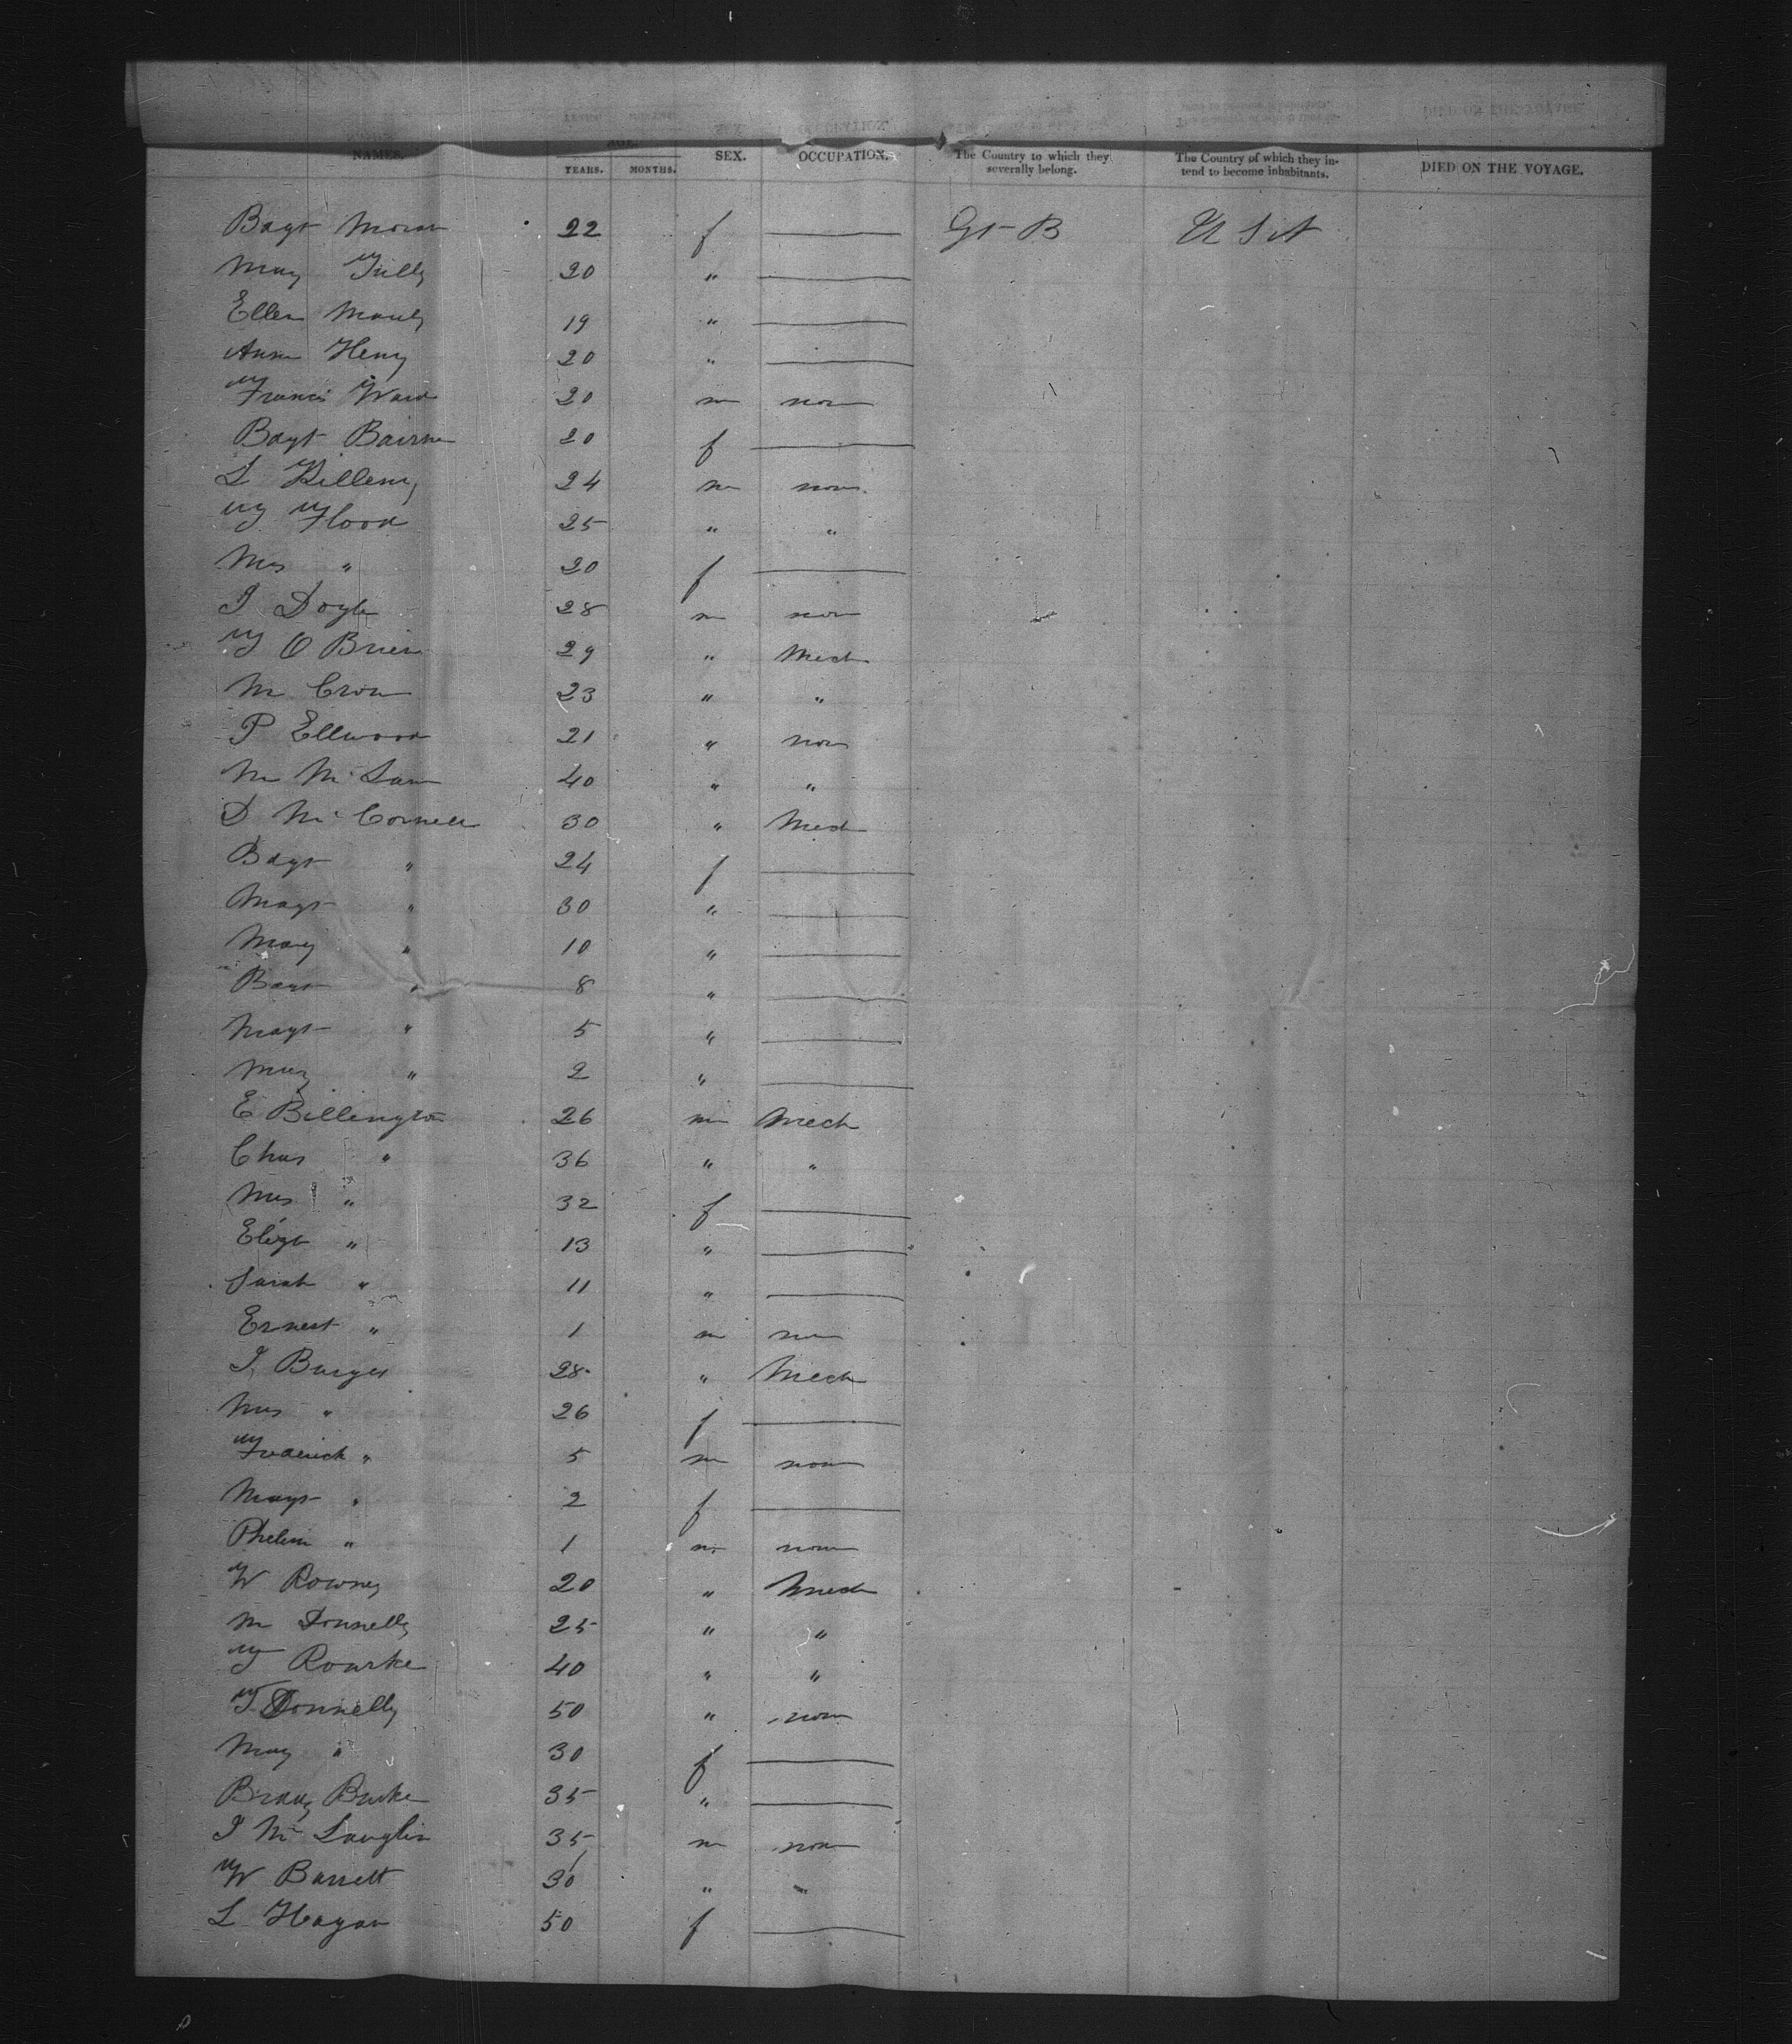 NAMES. AGE. SEX. OCCUPATION. The Country to which they severally belong. The Country of which they intend to become inhabitants. DIED ON THE VOYAGE.
YEARS. MONTHS.
Bagt Moran 22 f — Gt B U S A
Mary Tully 20 " —
Ellen Manly 19 " —
Anne Henry 20 " —
Francis Ward 20 m non
Bagt Bairne 20 f —
L Killeny 24 m non
T Flood 25 " "
Mrs " 20 f —
J Doyle 28 m non
T O Brien 29 " Mech
M Crow 23 " "
P Ellwood 21 " non
M Mc 40 " "
D Mc Cornell 30 " Mech
Bagt " 24 f —
Magt " 30 " —
Mary " 10 " —
Bagt " 8 " —
Magt " 5 " —
Mary " 2 " —
E Billington 26 m Mech
Chas " 36 " "
Mrs " 32 f —
Elizt " 13 " —
Sarah " 11 " —
Ernest " 1 m non
J. Burges 28 " Mech
Mrs " 26 f —
Frederick " 5 m non
Magt " 2 f —
Phelim " 1 m non
W Rowney 20 " Mech
M Donnelly 25 " "
T Rourke 40 " "
T Donnelly 50 " non
Mary " 30 f —
Burke 35 " —
J Mc Lauglin 35 m non
W Barrett 30 " "
L Hagan 50 f —